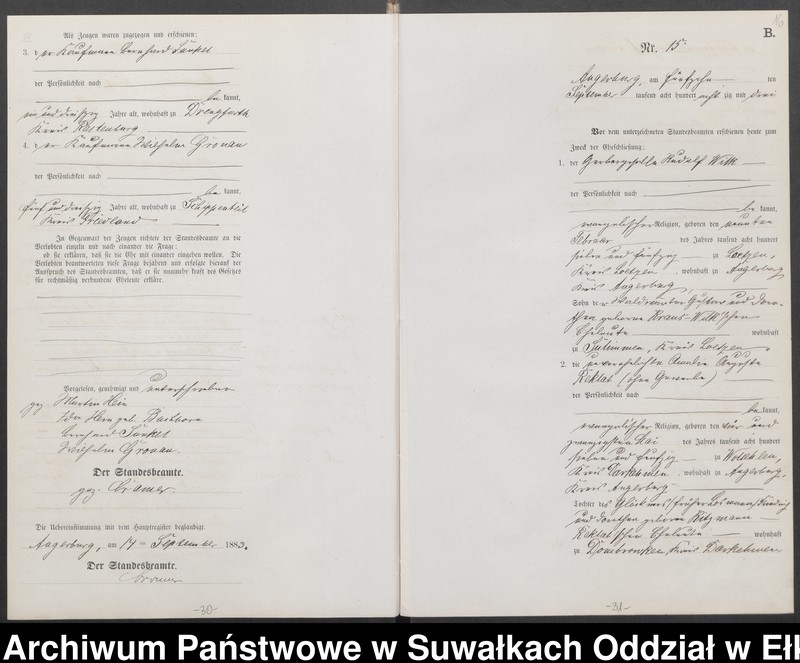 Als Zeugen waren zugezogen und erschienen:
3. der Kaufmann Bernhard Sünkel
der Persönlichkeit nach
be kannt,
ein und dreißig Jahre alt, wohnhaft zu Drengfurth
Kreis Rastenburg
4. der Kaufmann Wilhelm Gronau
der Persönlichkeit nach
be kannt,
fünf und dreißig Jahre alt, wohnhaft zu Schippenbeil
Kreis Friedland
In Gegenwart der Zeugen richtete der Standesbeamte an die
Verlobten einzeln und nach einander die Frage:
ob sie erklären, daß sie die Ehe mit einander eingehen wollen. Die
Verlobten beantworteten diese Frage bejahend und erfolgte hierauf der
Ausspruch des Standesbeamten, daß er sie nunmehr kraft des Gesetzes
für rechtmäßig verbundene Eheleute erkläre.
Vorgelesen, genehmigt und unterschrieben
gez. Martin Hein
Ida Hein geb.
Bernhard Sünkel
Wilhelm Gronau.
Der Standesbeamte.
gez. Cramer.
Die Uebereinstimmung mit dem Hauptregister beglaubigt
Angerburg, am 14ten September 1883.
Der Standesbeamte.
Cramer
-30-
B.
Nr. 15.
Angerburg, am fünfzehn ten
September tausend acht hundert acht zig und drei
Vor dem unterzeichneten Standesbeamten erschienen heute zum
Zweck der Eheschließung:
1. der Gerbergeselle Rudolf Wilk
der Persönlichkeit nach
be kannt,
evangelischer Religion, geboren den neunten
Februar des Jahres tausend acht hundert
sieben und fünfzig zu Loetzen,
Kreis Loetzen, wohnhaft zu Angerburg
Kreis Angerburg,
Sohn der Gustav und Doro-
thea geborene Kraus-Wilk'schen
Eheleute wohnhaft
zu Sulimmen, Kreis Loetzen
2. die unverehelichte Amalie Auguste
Riklat (ohne Gewerbe)
der Persönlichkeit nach
be kannt,
evangelischer Religion, geboren den vier und
zwanzigsten Mai des Jahres tausend acht hundert
sieben und fünfzig zu
Kreis Darkehmen, wohnhaft zu Angerburg,
Kreis Angerburg
Tochter des früher Losmann Friedrich
und Dorothea geborene Kitzmann
Riklat'schen Eheleute wohnhaft
zu Dombrowken, Kreis Darkehmen
-31-
Archiwum Państwowe w Suwałkach Oddział w Ełk